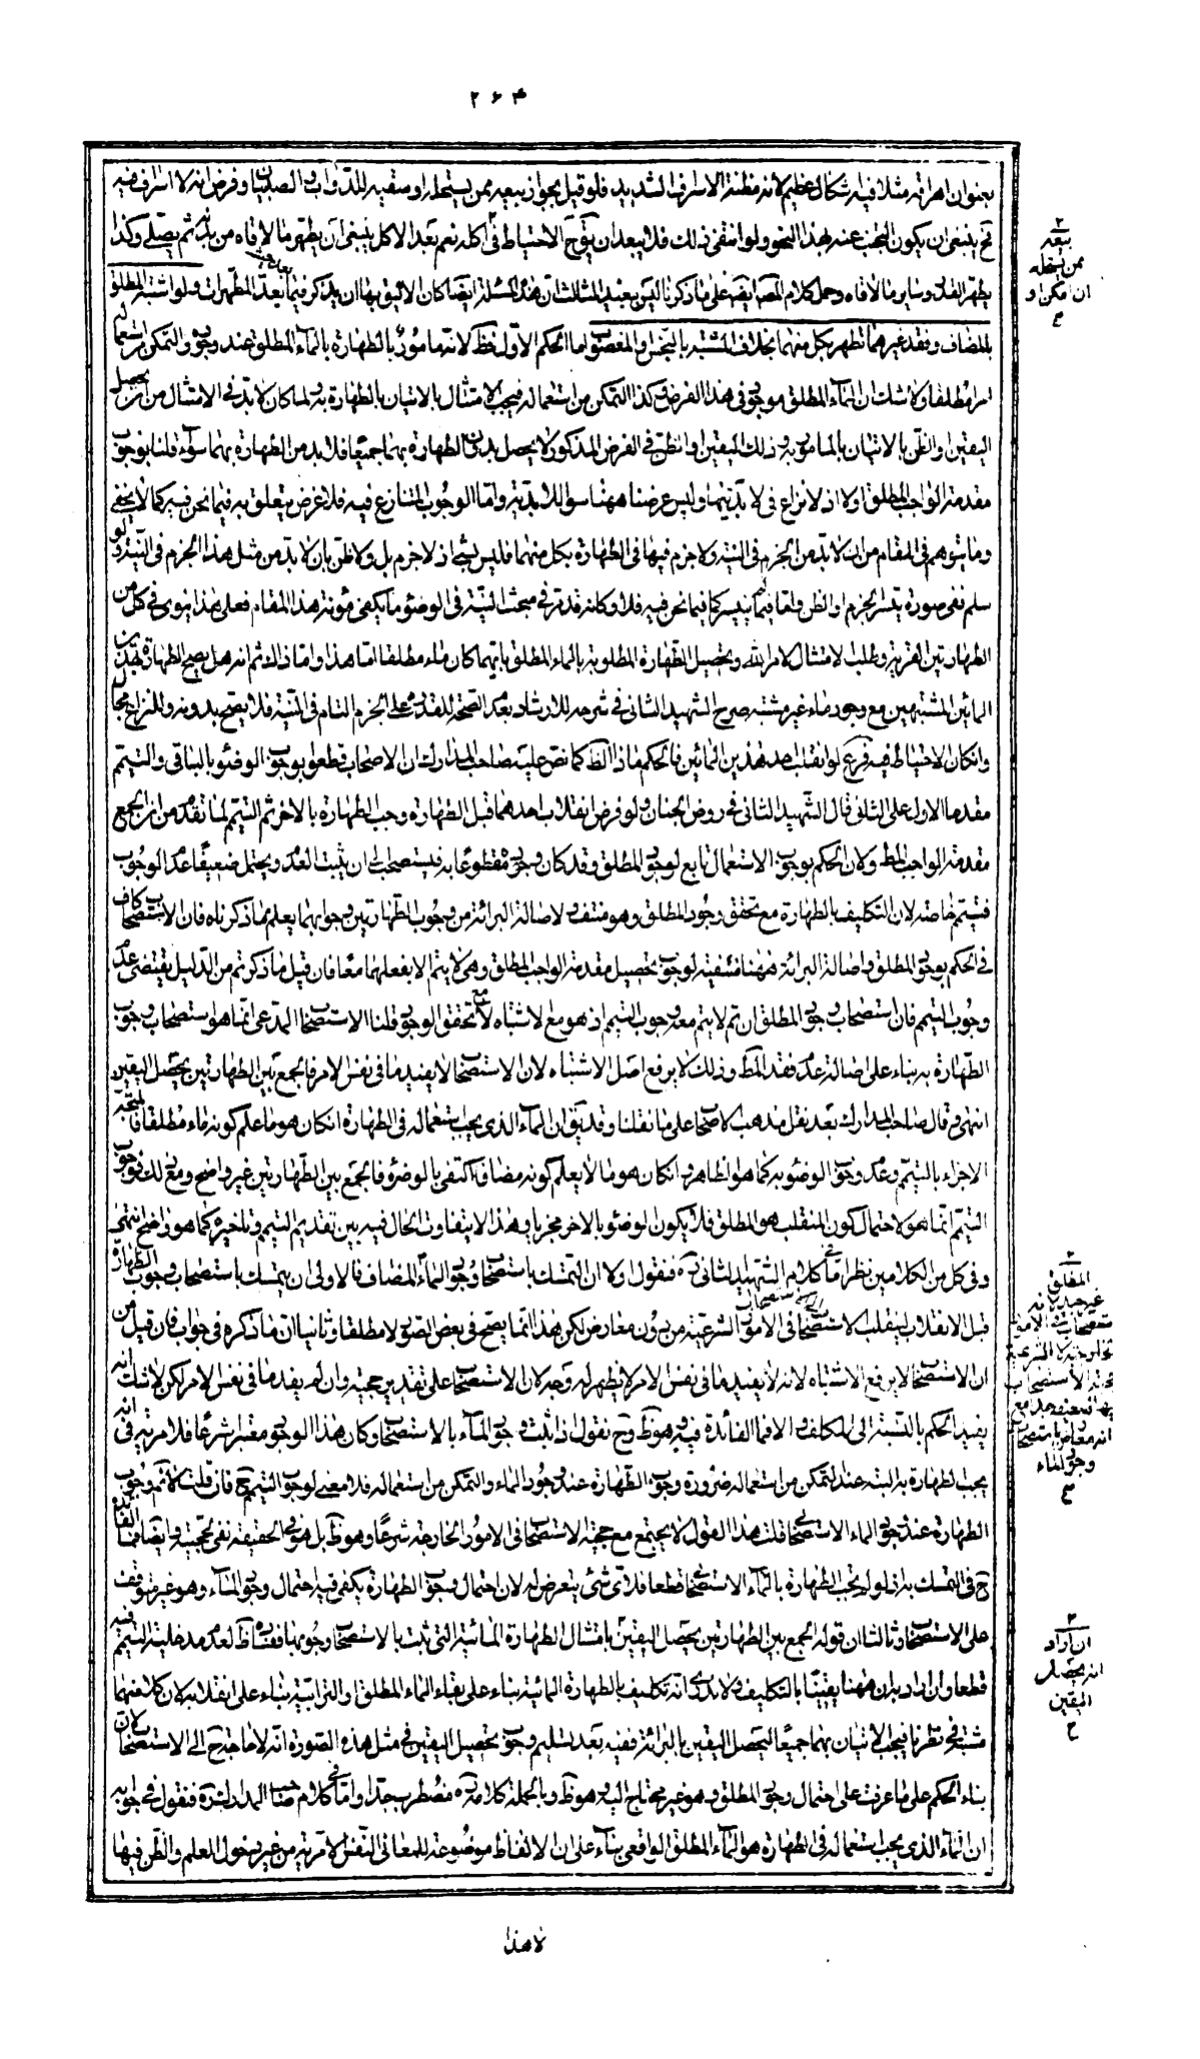 ۲۶۴
بعنوان اهراقه مثلا فيه اشكال عظيم لانه مظنة الاسراف الشديد فلو قيل بجواز بيعه ممن يستحله او سقيه للدواب والصبيان وفرض انه لا اسراف فيه
فح ينبغى ان يكون التجنب عنه بهذا النحو ولو انتفى ذلك فلا يبعد ان يكون ح الاحتياط فى اكله نعم بعد الاكل ينبغى ان يطهر ما لاقاه من بدنه ثم يصلى وكذا
يطهر القدر وساير ما لاقاه وحمل كلام المصنف ايضا على ما ذكرنا ليس ببعيد الثالث ان هذه المسئلة ايضا كان الاليق بها ان يذكر فيما بعد المطهرات ولو اشتبه المطلق
بالمضاف وفقد غيرهما تطهر بكل منهما بخلاف المشتبه بالنجس والمغصوب اما الحكم الاول فظ لانه مامور بالطهارة بالماء المطلق عند وجوده والتمكن من استعماله
امرا مطلقا ولا شك ان الماء المطلق موجود فى هذا الفرض وكذا التمكن من استعماله فيجب الامتثال بالاتيان بالطهارة به ولما كان لا بد فى الامتثال من ان يحصل
اليقين او الظن بالاتيان بالمامور به وذلك اليقين او الظن فى الفرض المذكور لا يحصل بدون الطهارة بهما جميعا فلا بد من الطهارة بهما سواء قلنا بوجوب
مقدمة الواجب المطلق او لا اذ لا نزاع فى لا بديتها وليس غرضنا ههنا سوى اللابدية واما الوجوب المتنازع فيه فلا غرض يتعلق به فيما نحن فيه كما لا يخفى
وما يتوهم فى المقام من انه لا بد من الجزم فى النية ولا جزم فيها فى الطهارة بكل منهما فليس بشئ اذ لا جزم بل ولا ظن بان لا بد من مثل هذا الجزم فى النية ولو
سلم ففى صورة يتيسر الجزم او الظن واما فيما لم يتيسر كما فيما نحن فيه فلا وكانه قد مر فى مبحث النية فى الوضوء ما يكفى مؤنة هذا المقام فعلى هذا ينوى فى كل من
الطهارتين القربة وطلب الامتثال لامر الله وتحصيل الطهارة المطلوبة بالماء المطلق بايهما كان ماء مطلقا اما هذا واما ذاك ثم انه هل يصح الطهارة بهذين
المائين المشتبهين مع وجود ماء غير مشتبه صرح الشهيد الثانى فى شرحه للارشاد بعدم الصحة للقدرة على الجزم التام فى النية فلا يصح بدونه وللنزاع مجال
وان كان الاحتياط فيه فرع لو انقلب احد هذين المائين فالحكم ماذا الظ كما نص عليه صاحب المدارك ان الاصحاب قطعوا بوجوب الوضوء بالباقى والتيمم
مقدما الاول على الثانى قال الشهيد الثانى فى روض الجنان ولو فرض انقلاب احدهما قبل الطهارة وجب الطهارة بالاخر ثم التيمم لما تقدم من ان الجمع
مقدمة الواجب المط ولان الحكم بوجوب الاستعمال تابع لوجود المطلق وقد كان وجوده مقطوعا به فيستصحب الى ان يثبت العدم ويحتمل ضعيفا عدم الوجوب
فيتيمم خاصة لان التكليف بالطهارة مع تحقق وجود المطلق وهو منتف ولاصالة البرائة من وجوب الطهارتين وجوابهما يعلم مما ذكرناه فان الاستصحاب كاف
فى الحكم بوجود المطلق واصالة البرائة ههنا منتفية لوجوب تحصيل مقدمة الواجب المطلق وهى لا يتم الا بفعلهما معا فان قيل ما ذكرتم من الدليل يقتضى عدم
وجوب التيمم فان استصحاب وجود المطلق ان تم لا يتم معه وجوب التيمم اذ هو مع الاشتباه لا مع تحقق الوجود قلنا الاستصحاب المدعى انما هو استصحاب وجوب
الطهارة به بناء على اصالة عدم فقد المط وذلك لا يرفع اصل الاشتباه لان الاستصحاب لا يفيد ما فى نفس الامر فالجمع بين الطهارتين يحصل اليقين
انتهى وقال صاحب المدارك بعد نقل مذهب الاصحاب على ما نقلنا وقد يق ان الماء الذى يجب استعماله فى الطهارة ان كان هو ما علم كونه ماء مطلقا فالمتجه
الاجزاء بالتيمم وعدم وجوب الوضوء به كما هو الظاهر وان كان هو ما لا يعلم كونه مضافا اكتفى بالوضوء فالجمع بين الطهارتين غير واضح ومع ذلك فوجوب
التيمم انما هو لاحتمال كون المنقلب هو المطلق فلا يكون الوضوء بالاخر مجزيا وهذا لا يتفاوت الحال فيه بين تقديم التيمم وتاخيره كما هو واضح انتهى
وفى كل من الكلامين نظر اما فى كلام الشهيد الثانى ره فنقول اولا ان التمسك باستصحاب وجود الماء المضاف فالاولى ان يتمسك باستصحاب وجوب الطهارة
قبل الانقلاب لينقلب الاستصحاب فى الامور الشرعية من دون معارض لكن هذا انما يصح فى بعض الصور لا مطلقا وثانيا ان ما ذكره فى جواب فان قيل من
ان الاستصحاب لا يرفع الاشتباه لانه لا يفيد ما فى نفس الامر لا يظهر له وجه لان الاستصحاب على تقدير حجيته وان لم يفد ما فى نفس الامر لكن لا شك انه
يفيد الحكم بالنسبة الى المكلف والا فما الفائدة فيه وهو ظ وح نقول اذا ثبت وجود الماء بالاستصحاب وكان هذا الوجود معتبرا شرعا فلا مرية فى انه
يجب الطهارة به البتة عند التمكن من استعماله ضرورة وجوب الطهارة عند وجود الماء والتمكن من استعماله فلا معنى لوجوب التيمم ح فان قلت لا نم وجوب
الطهارة عند وجود الماء الاستصحابى قلت هذا القول لا يجتمع مع حجية الاستصحاب فى الامور الخارجة شرعا وهو ظ بل هو فى الحقيقة نفى لحجيته وايضا فما الفائدة
ح فى التمسك به اذ لو لم يجب الطهارة بالماء الاستصحابى قطعا فلاى شئ يتعرض له لان احتمال وجوب الطهارة يكفى فيه احتمال وجود الماء وهو غير متوقف
على الاستصحاب وثالثا ان قوله الجمع بين الطهارتين يحصل اليقين بامتثال الطهارة المائية التى ثبت بالاستصحاب وجوبها ففساده ظ لعدم مدخلية التيمم فيه
قطعا وان اراد به ان ههنا يقينا بالتكليف ولا ندرى انه تكليف بالطهارة المائية بناء على بقاء الماء المطلق او الترابية بناء على انقلابه لان كلا منهما
مشتبه فى نظرنا فيجب الاتيان بهما جميعا ليحصل اليقين بالبرائة ففيه بعد تسليم وجوب تحصيل اليقين فى مثل هذه الصورة انه لا حاجة ح الى الاستصحاب لان
بناء الحكم على ما عرفت على احتمال وجود المطلق وهو غير محتاج اليه وهو ظ وبالجملة كلامه ره مضطرب جدا واما فى كلام صاحب المدارك ره فنقول فى جوابه
ان الماء الذى يجب استعماله فى الطهارة هو الماء المطلق الواقعى بناء على ان الالفاظ موضوعة للمعانى النفس الامرية من غير دخول العلم والظن فيها
لا هذا
بيعه
ممن يستحله
ان امكن او
المطلق
غير جيد لانه
وجود الماء
ان اراد
انه يحصل
اليقين